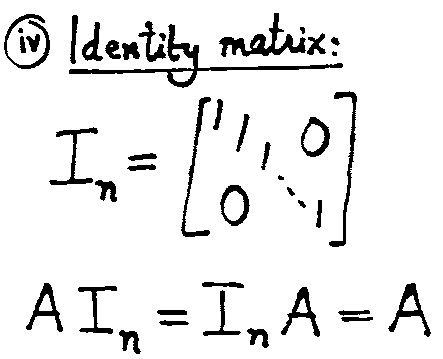 iv Identity matrix:
I_n = [1 1 1 0 0 ⋱ 1]
A I_n = I_n A = A